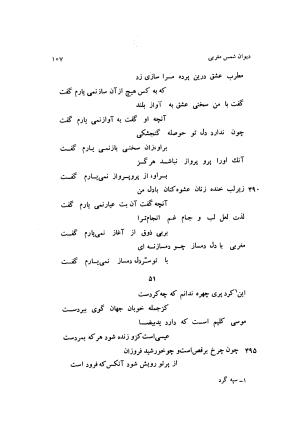 دیوان شمس مغربی
۱۰۷
مطرب عشق درین پرده مرا سازی زد
که به کس هیچ از آن ساز نمی یارم گفت
گفت با من سخنی عشق به آواز بلند
آنچه او گفت به آواز نمی یارم گفت
چون ندارد دل تو حوصله گنجشکی
براوزان سخنی باز نمی یارم گفت
آنك اورا پرو پرواز نباشد هرگز
براو، از پروپرواز نمی‌یارم گفت
۳۹۰ زیرلب خنده زنان عشوه‌کنان بادل من
آنچه گفت آن بت عیار نمی یارم گفت
لذت لعل لب و جام غم انجام‌ترا
بربی ذوق از آغاز نمی‌یارم گفت
مغربی با دل دمساز چو دمساز نه ای
با تو سرّدل دمساز نمی‌یارم گفت
۵۱
این‌گرد پری چهره ندانم که چه‌کردست
کزجمله خوبان جهان گوی ببردست
موسی کلیم است که دارد یدبیضا
عیسی‌است کزو زنده شود هرکه بمردست
۳۹۵ چون چرخ برقص‌است‌و چوخورشید فروزان
از پرتو رویش شود آنکس‌که فرود است
۱ـ سپه گرد